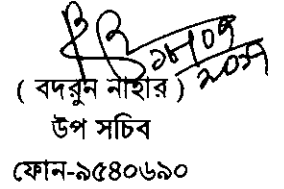 ( বদরুন নাহার )
উপ সচিব
ফোন-৯৫৪০৬৯০